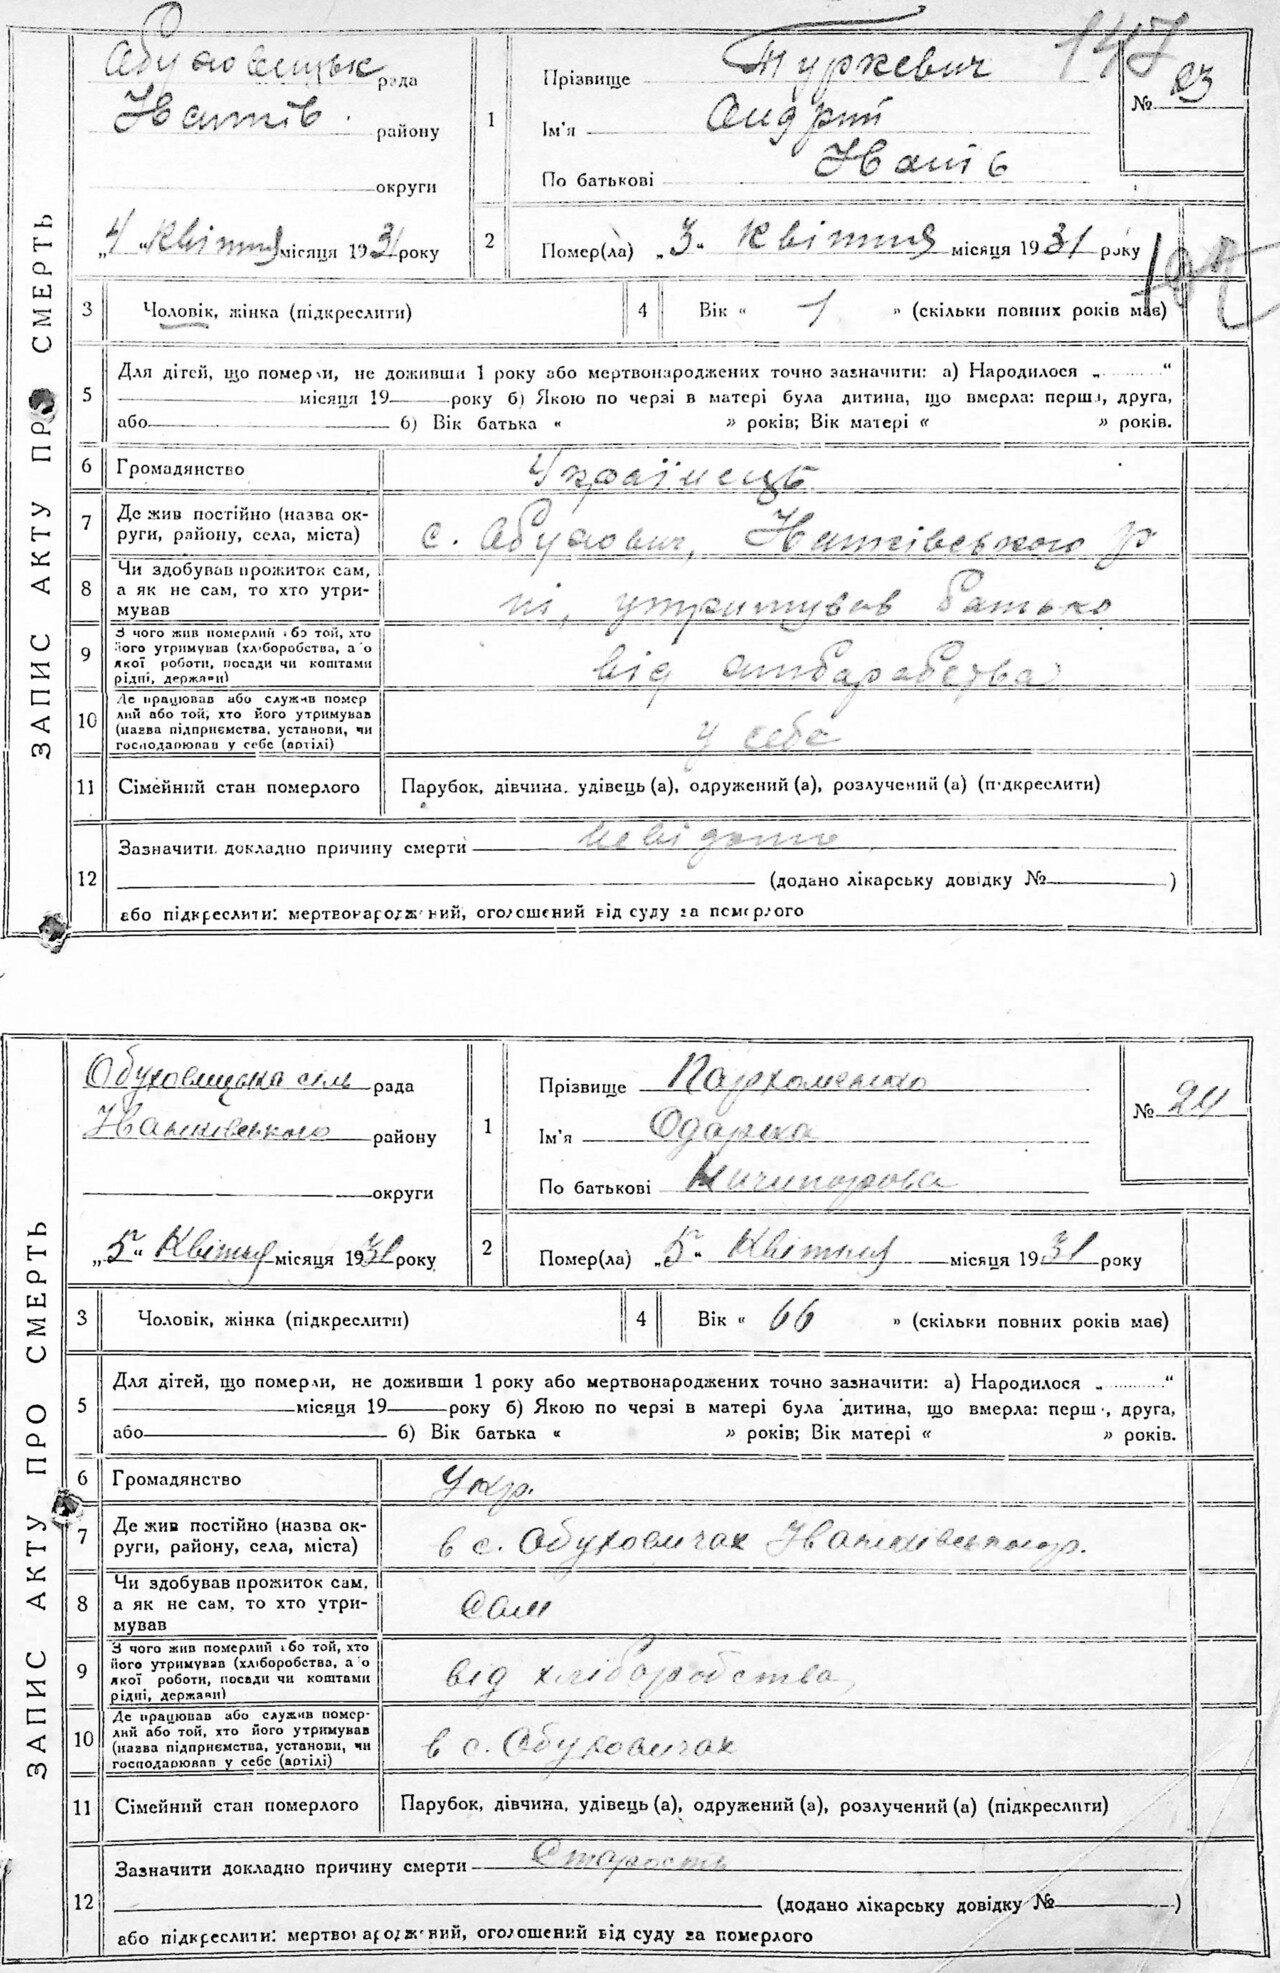 147
ЗАПИС АКТУ ПРО СМЕРТЬ
Обуховицьк рада
Іванків. району
округи
„4“ Квітня місяця 1931 року
1
Прізвище Туркевич
Ім'я Андрій
По батькові Іванів
№ 23
2
Помер(ла) „3“ Квітня місяця 1931 року
3 Чоловік, жінка (підкреслити)
4 Вік « 1 » (скільки повних років має)
5 Для дітей, що померли, не доживши 1 року або мертвонароджених точно зазначити: а) Народилося „ “
місяця 19 року б) Якою по черзі в матері була дитина, що вмерла: перша, друга,
або б) Вік батька « » років; Вік матері « » років.
6 Громадянство Українець
7 Де жив постійно (назва ок-
руги, району, села, міста) с. Обухович, Іванківського р
8 Чи здобував прожиток сам,
а як не сам, то хто утри-
мував ні, утримував батько
9 З чого жив померлий або той, хто
його утримував (хліборобства, або
якої роботи, посади чи коштами
рідні, держави) від
10 Де працював або служив помер
лий або той, хто його утримував
(назва підприємства, установи, чи
господарював у себе (артілі) у себе
11 Сімейний стан померлого Парубок, дівчина, удівець (а), одружений (а), розлучений (а) (підкреслити)
12 Зазначити докладно причину смерти невідомо
(додано лікарську довідку № )
або підкреслити: мертвонароджений, оголошений від суду за померлого
ЗАПИС АКТУ ПРО СМЕРТЬ
Обуховицька сель рада
Іванківського району
округи
„5“ Квітня місяця 1931 року
1
Прізвище Пархоменко
Ім'я Одарка
По батькові Ничипорова
№ 24
2
Помер(ла) „5“ Квітня місяця 1931 року
3 Чоловік, жінка (підкреслити)
4 Вік « 66 » (скільки повних років має)
5 Для дітей, що померли, не доживши 1 року або мертвонароджених точно зазначити: а) Народилося „ “
місяця 19 року б) Якою по черзі в матері була дитина, що вмерла: перш , друга,
або б) Вік батька « » років; Вік матері « » років.
6 Громадянство Укр.
7 Де жив постійно (назва ок-
руги, району, села, міста) в с. Обуховичах Іванківськогор.
8 Чи здобував прожиток сам,
а як не сам, то хто утри-
мував Сам
9 З чого жив померлий або той, хто
його утримував (хліборобства, або
якої роботи, посади чи коштами
рідні, держави) від хліборобства,
10 Де працював або служив помер-
лий або той, хто його утримував
(назва підприємства, установи, чи
господарював у себе (артілі) в с. Обуховичах
11 Сімейний стан померлого Парубок, дівчина, удівець (а), одружений (а), розлучений (а) (підкреслити)
12 Зазначити докладно причину смерти Старость
(додано лікарську довідку № )
або підкреслити: мертвонароджений, оголошений від суду за померлого